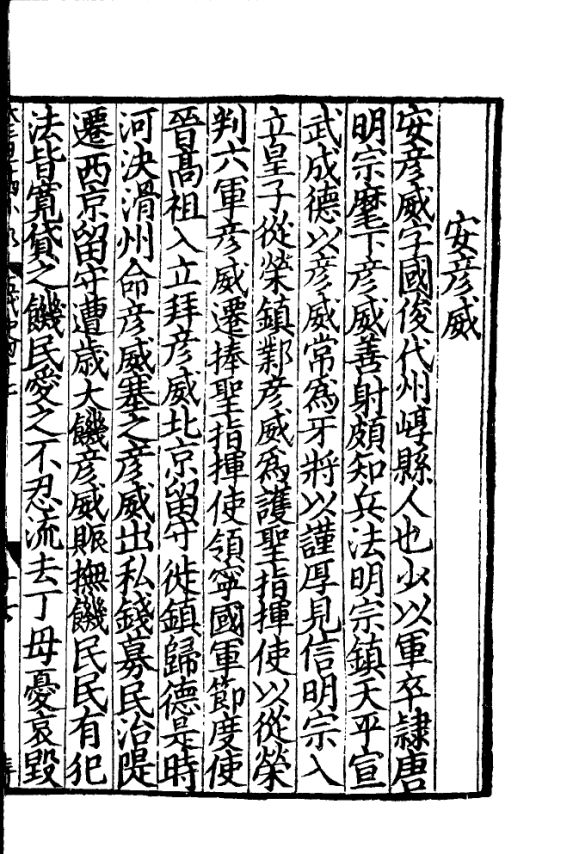 安彦威
安彦威字國俊代州崞縣人也少以軍卒隷唐
明宗麾下彦威善射頗知兵法明宗鎮天平宣
武成德以彦威常爲牙將以謹厚見信明宗入
立皇子從榮鎮鄴彦威爲護聖指揮使以從榮
判六軍彦威遷捧聖指揮使領寧國軍節度使
晉髙祖入立拜彦威北京留守徙鎮歸德是時
河決滑州命彦威塞之彦威出私錢募民治隄
遷西京留守遭歳大饑彦威賑撫饑民民有犯
法皆寛貸之饑民愛之不忍流去丁母憂哀毀